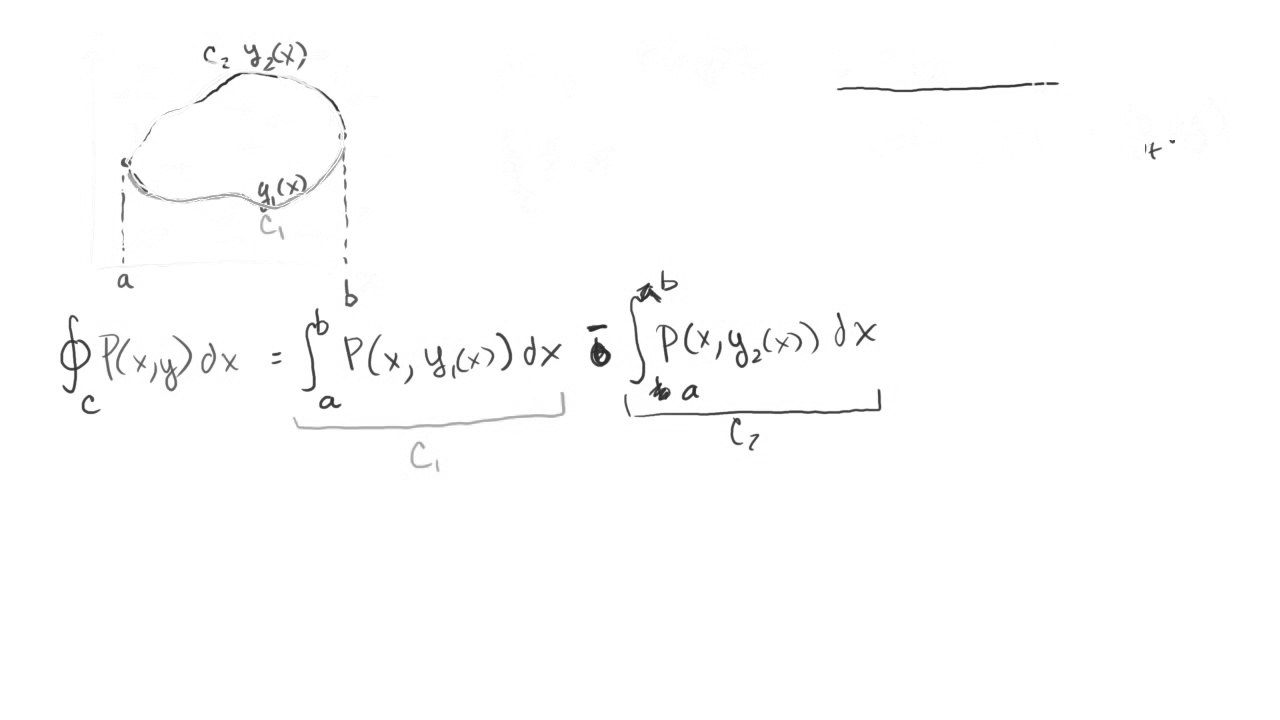 C₂ y₂(x)
y₁(x)
C₁
a
b
∮_C P(x,y) dx = ∫_a^b P(x, y₁(x)) dx - ∫_a^b P(x, y₂(x)) dx
C₁ C₂